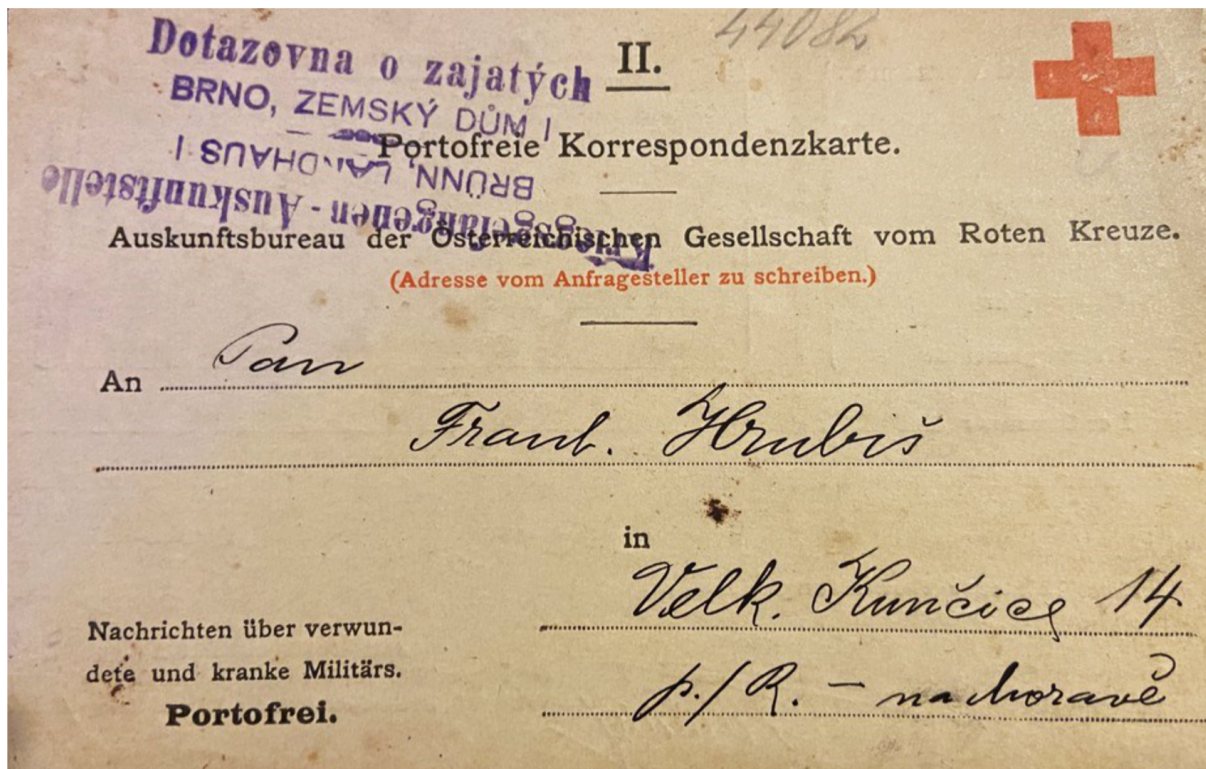 44082
Dotazovna o zajatých
BRNO, ZEMSKÝ DŮM I
BRÜNN, LANDHAUS I
Kriegsgefangenen-Auskunftstelle
II.
Portofreie Korrespondenzkarte.
Auskunftsbureau der Österreichischen Gesellschaft vom Roten Kreuze.
(Adresse vom Anfragesteller zu schreiben.)
An Pan
Frant. Hrubiš
in
Velk. Kunčice 14
p./R. - na Moravě
Nachrichten über verwun-
dete und kranke Militärs.
Portofrei.